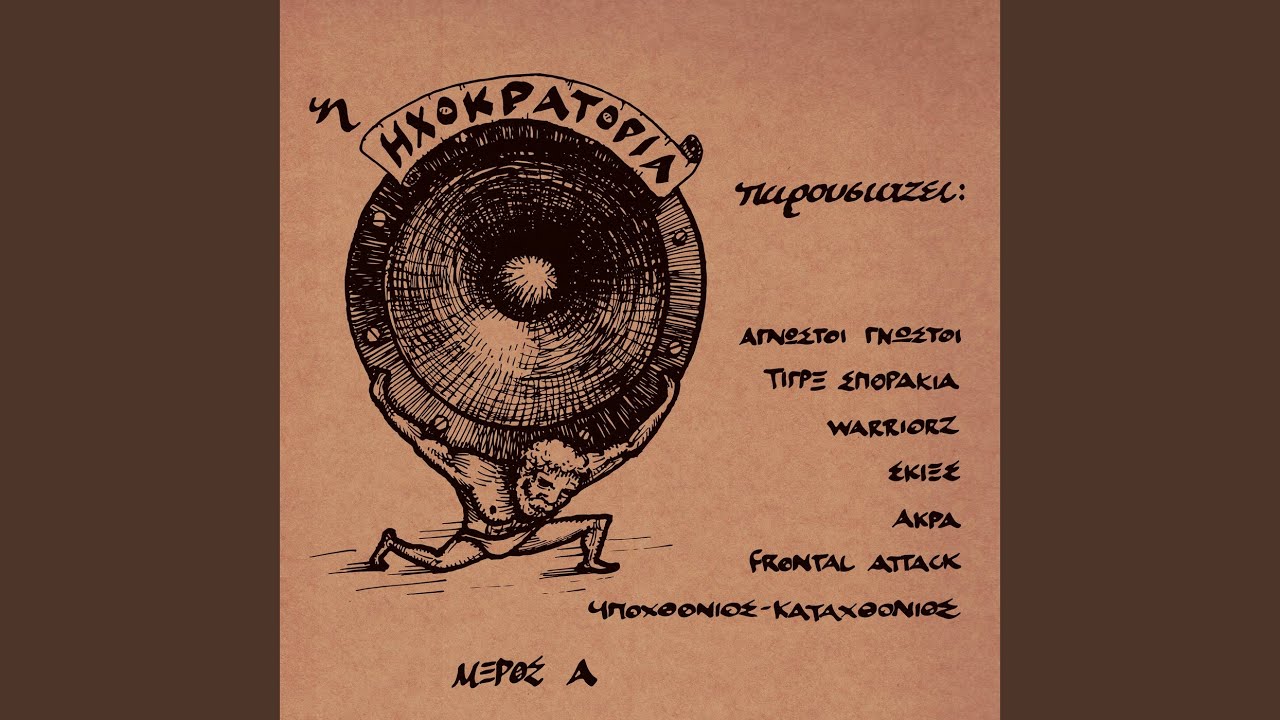 η ΗΧΟΚΡΑΤΟΡΙΑ
παρουσιαζει:
ΑΓΝΩΣΤΟΙ ΓΝΩΣΤΟΙ
ΤΙΓΡΕ ΣΠΟΡΑΚΙΑ
WARRIORZ
ΣΚΙΕΣ
ΑΚΡΑ
FRONTAL ATTACK
ΥΠΟΧΘΟΝΙΟΣ-ΚΑΤΑΧΘΟΝΙΟΣ
ΜΕΡΟΣ Α